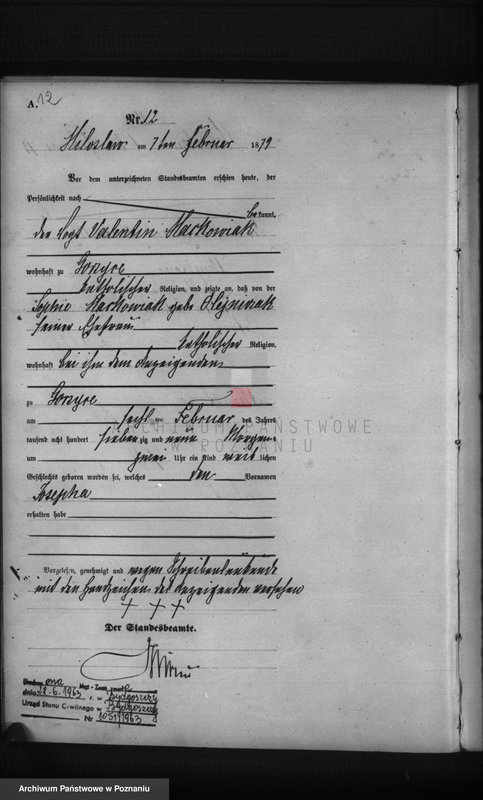 A. 12
Nr. 12
Miloslaw am 7ten Februar 1879
Vor dem unterzeichneten Standesbeamten erschien heute, der
Persönlichkeit nach
be kannt,
der Vogt Valentin Markowiak
wohnhaft zu Gorzyce
katholischer Religion, und zeigte an, daß von der
Sophie Markowiak geb. Olejniczak
seiner Ehefrau
katholischer Religion,
wohnhaft bei ihm dem Anzeigenden
zu Gorzyce
am sechsten Februar des Jahres
tausend acht hundert sieben zig und neun Morgens
um zwei Uhr ein Kind weib lichen
Geschlechts geboren worden sei, welches den Vornamen
Josepha
erhalten habe
Vorgelesen, genehmigt und wegen Schreibensunkunde
mit den Handzeichen des Anzeigenden versehen
+ + +
Der Standesbeamte.
ona
dnia 22.6.1963 r. w Bydgoszczy
Urząd Stanu Cywilnego w Bydgoszczy
Nr 1051/1963
ARCHIWUM PAŃSTWOWE
W POZNANIU
Archiwum Państwowe w Poznaniu